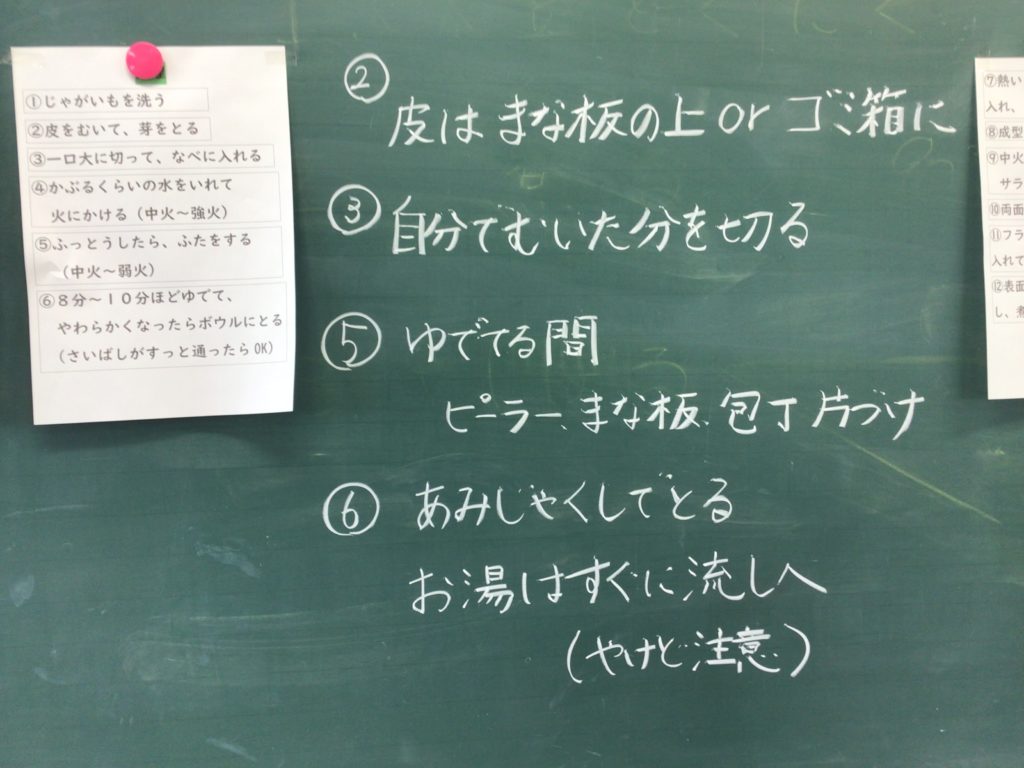 ①じゃがいもを洗う
②皮をむいて、芽をとる
③一口大に切って、なべに入れる
④かぶるくらいの水をいれて
火にかける（中火～強火）
⑤ふっとうしたら、ふたをする
（中火～弱火）
⑥８分～１０分ほどゆでて、
やわらかくなったらボウルにとる
（さいばしがすっと通ったらOK）
②
皮はまな板の上orゴミ箱に
③ 自分でむいた分を切る
⑤ ゆでてる間
ピーラー、まな板、包丁片づけ
⑥ あみじゃくしでとる
お湯はすぐに流しへ
（やけど注意）
⑦熱い
入れ、
⑧成型
⑨中火
サラ
⑩両面
⑪フラ
入れて
⑫表面
し、煮